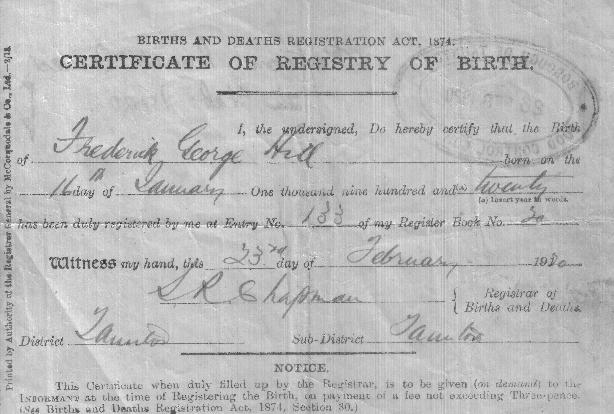 BIRTHS AND DEATHS REGISTRATION ACT, 1874.
CERTIFICATE OF REGISTRY OF BIRTH.
I, the undersigned, Do hereby certify that the Birth
of Frederick George Hill born on the
16th day of January One thousand nine hundred and (a) twenty
(a) Insert year in words.
has been duly registered by me at Entry No. 133 of my Register Book No. 20
Witness my hand, this 23rd day of February 1920
Registrar of
S R Chapman Births and Deaths.
District Taunton Sub-District Taunton
NOTICE.
This Certificate when duly filled up by the Registrar, is to be given (on demand) to the
INFORMANT at the time of Registering the Birth, on payment of a fee not exceeding Three-pence.
(See Births and Deaths Registration Act, 1874, Section 30.)
Printed by Authority of the Registrar General by McCorquodale & Co., Ltd.